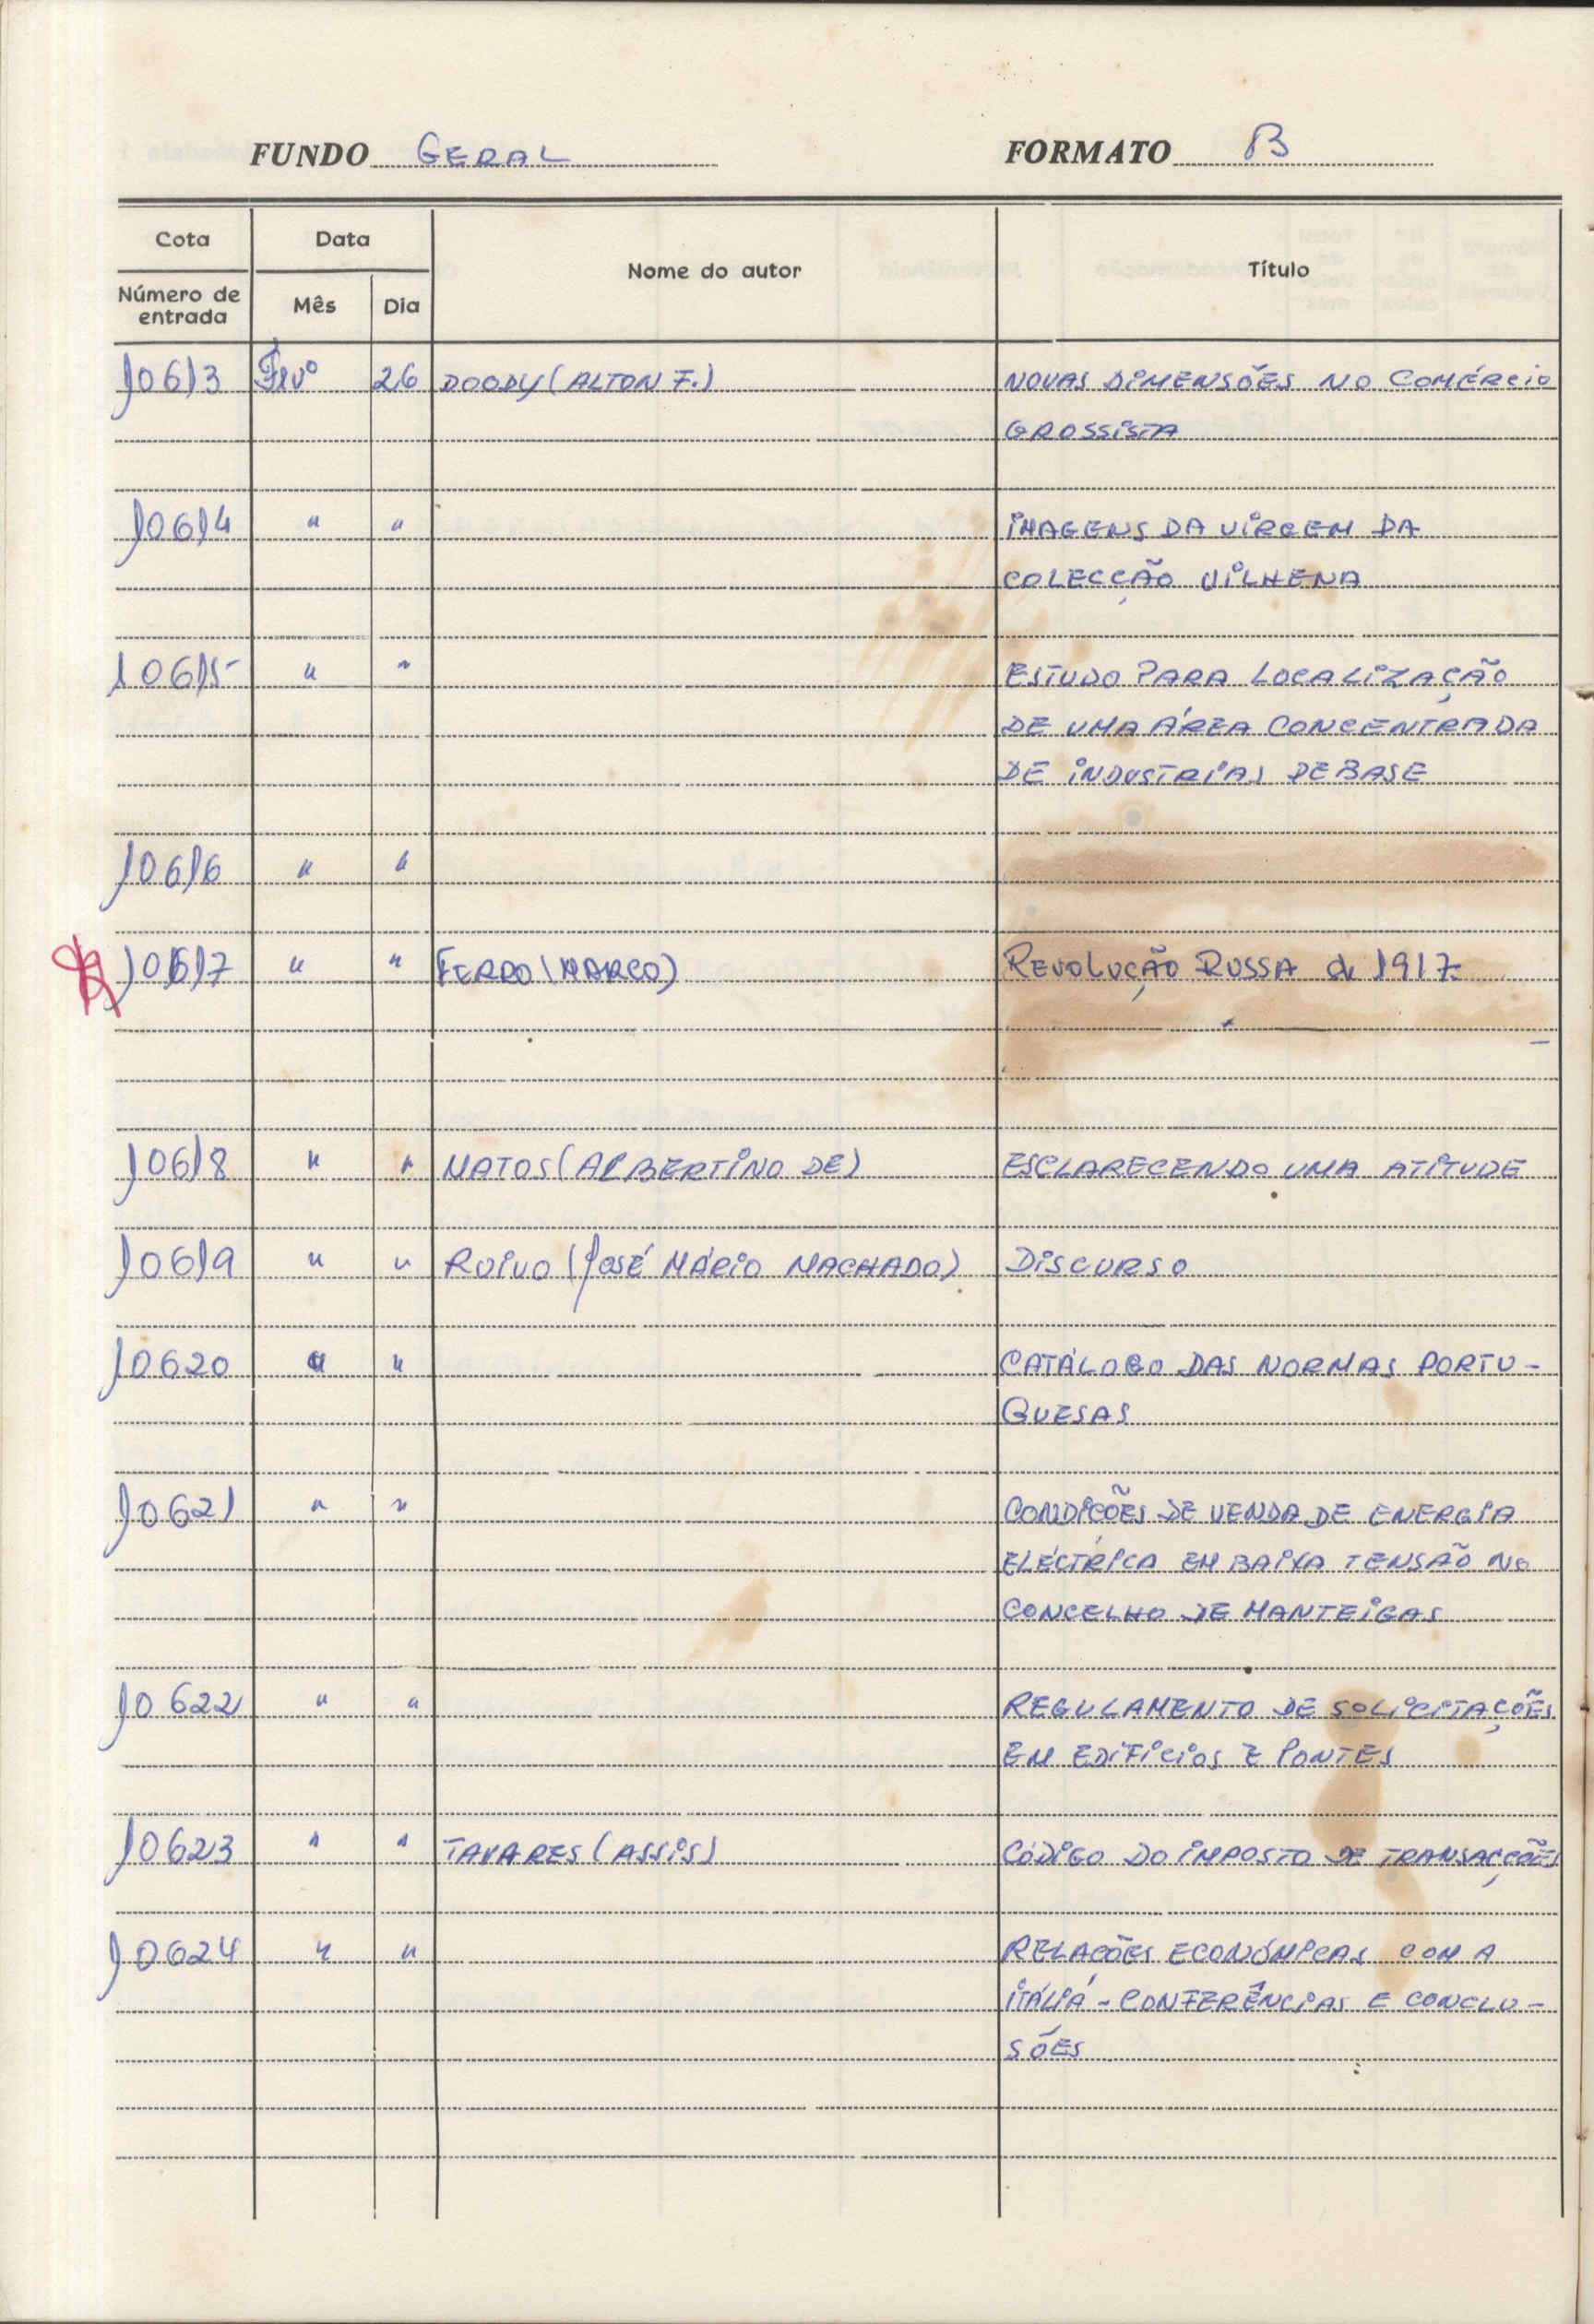 FUNDO GERAL FORMATO B
Cota Data Nome do autor Título
Número de entrada Mês Dia
10613 Fevº 26 DOODY (ALTON F.) NOVAS DIMENSÕES NO COMÉRCIO
GROSSISTA
10614 " " IMAGENS DA VIRGEM DA
COLECÇÃO VILHENA
10615 " " ESTUDO PARA LOCALIZAÇÃO
DE UMA ÁREA CONCENTRADA
DE INDUSTRIAS DE BASE
10616 " "
10617 " " FERRO (MARCO) REVOLUÇÃO RUSSA de 1917
10618 " " MATOS (ALBERTINO DE) ESCLARECENDO UMA ATITUDE
10619 " " RUIVO (JOSÉ MÁRIO MACHADO) DISCURSO
10620 " " CATÁLOGO DAS NORMAS PORTU-
GUESAS
10621 " " CONDIÇÕES DE VENDA DE ENERGIA
ELÉCTRICA EM BAIXA TENSÃO NO
CONCELHO DE MANTEIGAS
10622 " " REGULAMENTO DE SOLICITAÇÕES
EM EDIFICIOS E PONTES
10623 " " TAVARES (ASSIS) CÓDIGO DO IMPOSTO DE TRANSACÇÕES
10624 " " RELAÇÕES ECONÓMICAS COM A
ITÁLIA - CONFERÊNCIAS E CONCLU-
SÕES